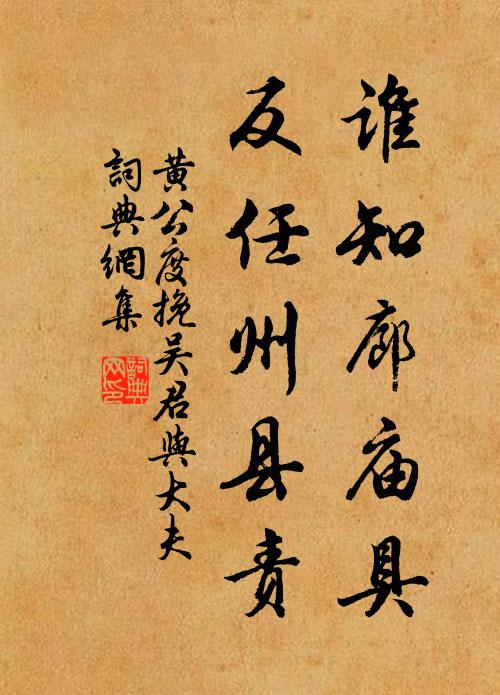 谁知廊庙具
反任州县责
黄公度挽吴君与大夫
词典網集
詞典网印